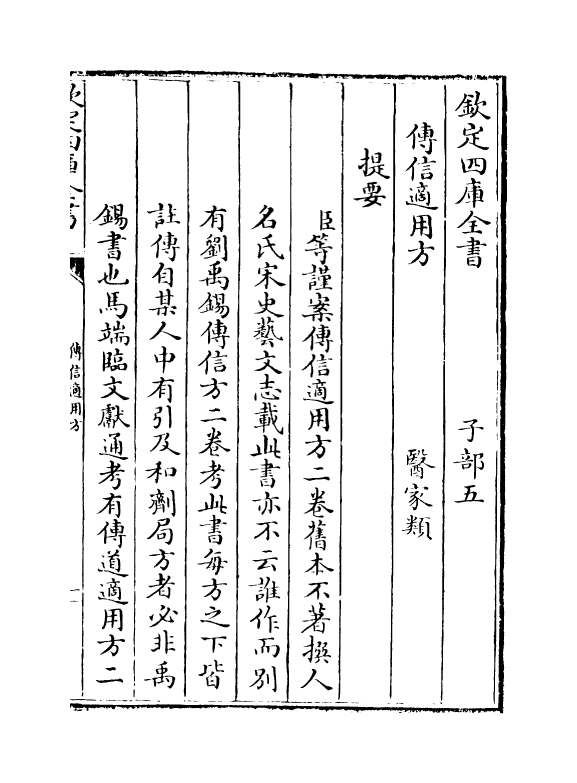 欽定四庫全書　子部五
傳信適用方　醫家類
提要
臣等謹案傳信適用方二卷舊本不著撰人
名氏宋史藝文志載此書亦不云誰作而別
有劉禹錫傳信方二卷考此書每方之下皆
註傳自某人中有引及和劑局方者必非禹
錫書也馬端臨文獻通考有傳道適用方二
欽定四庫全書
傳信適用方
一